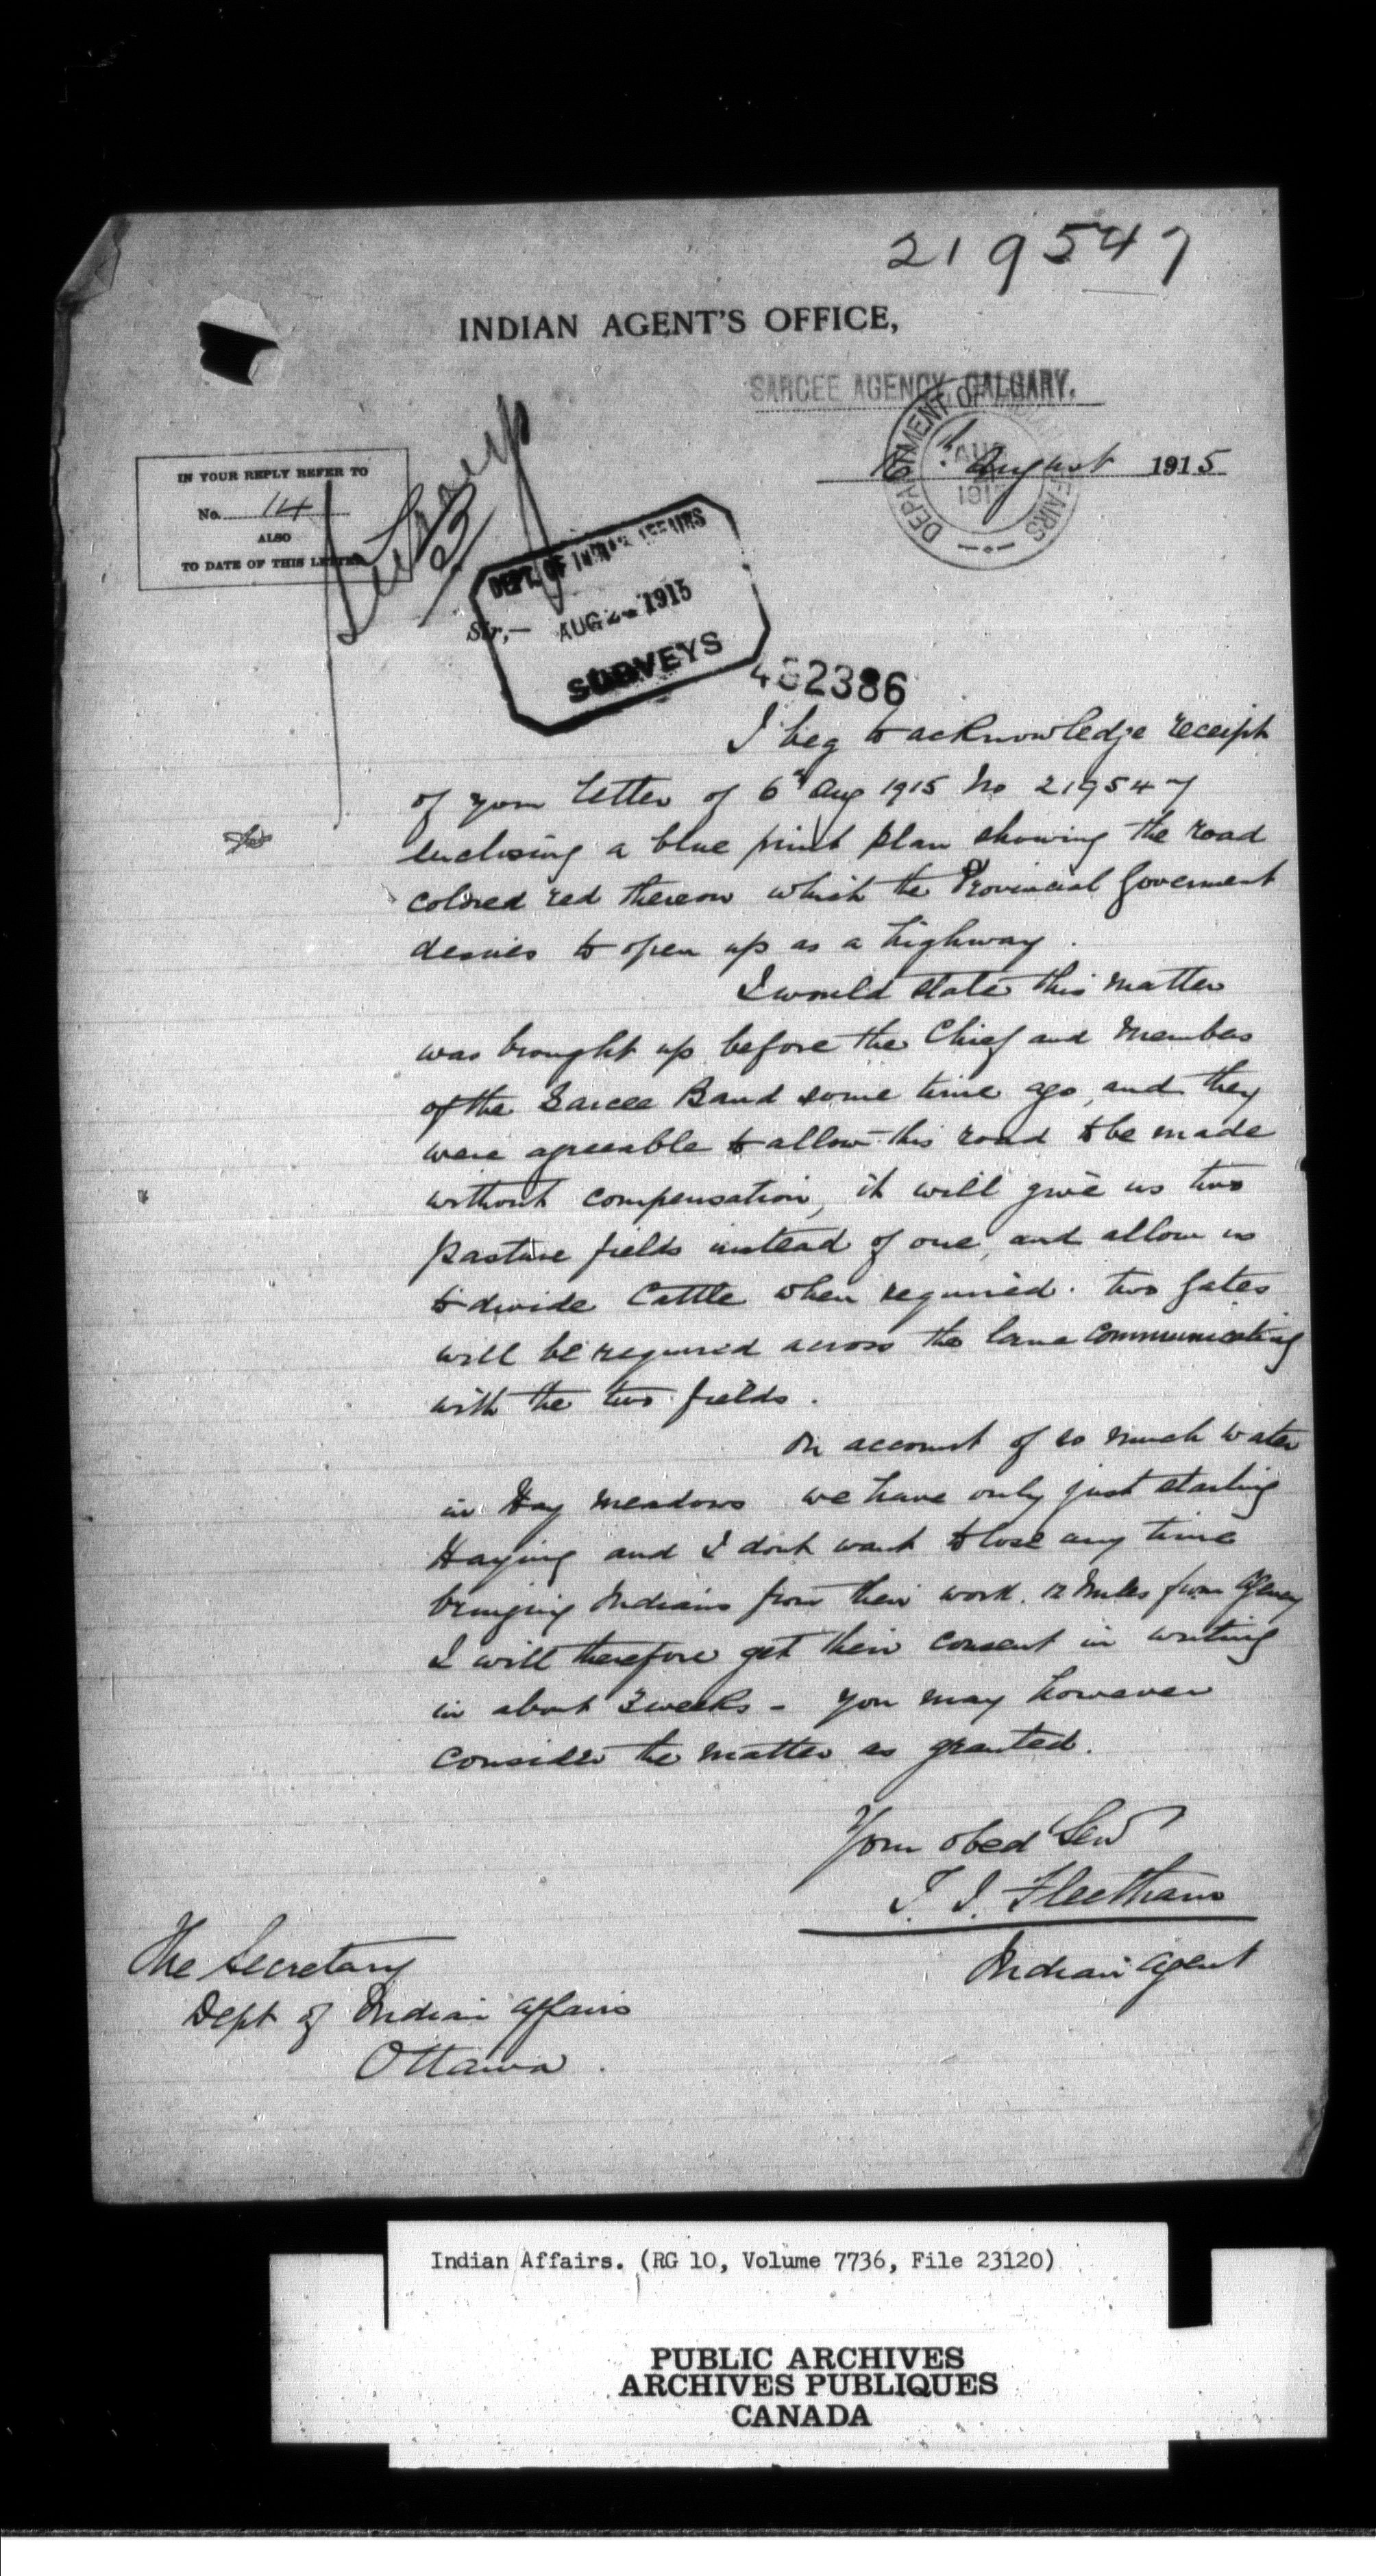 219547
INDIAN AGENT'S OFFICE,
SARCEE AGENCY, CALGARY.
August 1915
DEPARTMENT OF INDIAN AFFAIRS
AUG
191
IN YOUR REPLY REFER TO
No. 14
ALSO
TO DATE OF THIS LETTER
DEPT. OF INDIAN AFFAIRS
AUG 2 1915
SURVEYS
Sir,—
452386
I beg to acknowledge receipt
of your letter of 6th Aug 1915 No 219547
enclosing a blue print plan showing the road
colored red thereon which the Provincial Goverment
desires to open up as a highway.
I would state this matter
was brought up before the Chief and Members
of the Sarcee Band some time ago, and they
were agreeable to allow this road to be made
without compensation, it will give us two
pasture fields instead of one, and allow us
to divide Cattle when required. two gates
will be required across the lane communicating
with the two fields.
On account of so much water
in Hay meadows we have only just starting
Haying and I dont want to lose any time
bringing Indians from their work. 12 miles from Agency
I will therefore get their consent in writing
in about 3 weeks - you may however
consider the matter as granted.
Your obed Serv
T. J. Fleetham
Indian Agent
The Secretary
Dept of Indian Affairs
Ottawa.
Indian Affairs. (RG 10, Volume 7736, File 23120)
PUBLIC ARCHIVES
ARCHIVES PUBLIQUES
CANADA